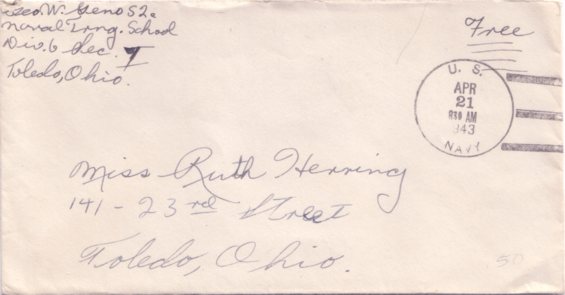 Geo. W. Geno S2.
Naval Trng. School
Div. 6 Sec. I
Toledo, Ohio.
Free
U. S.
APR
21
830 AM
1943
NAVY
Miss Ruth Herring
141 - 23rd Street
Toledo, Ohio.
50